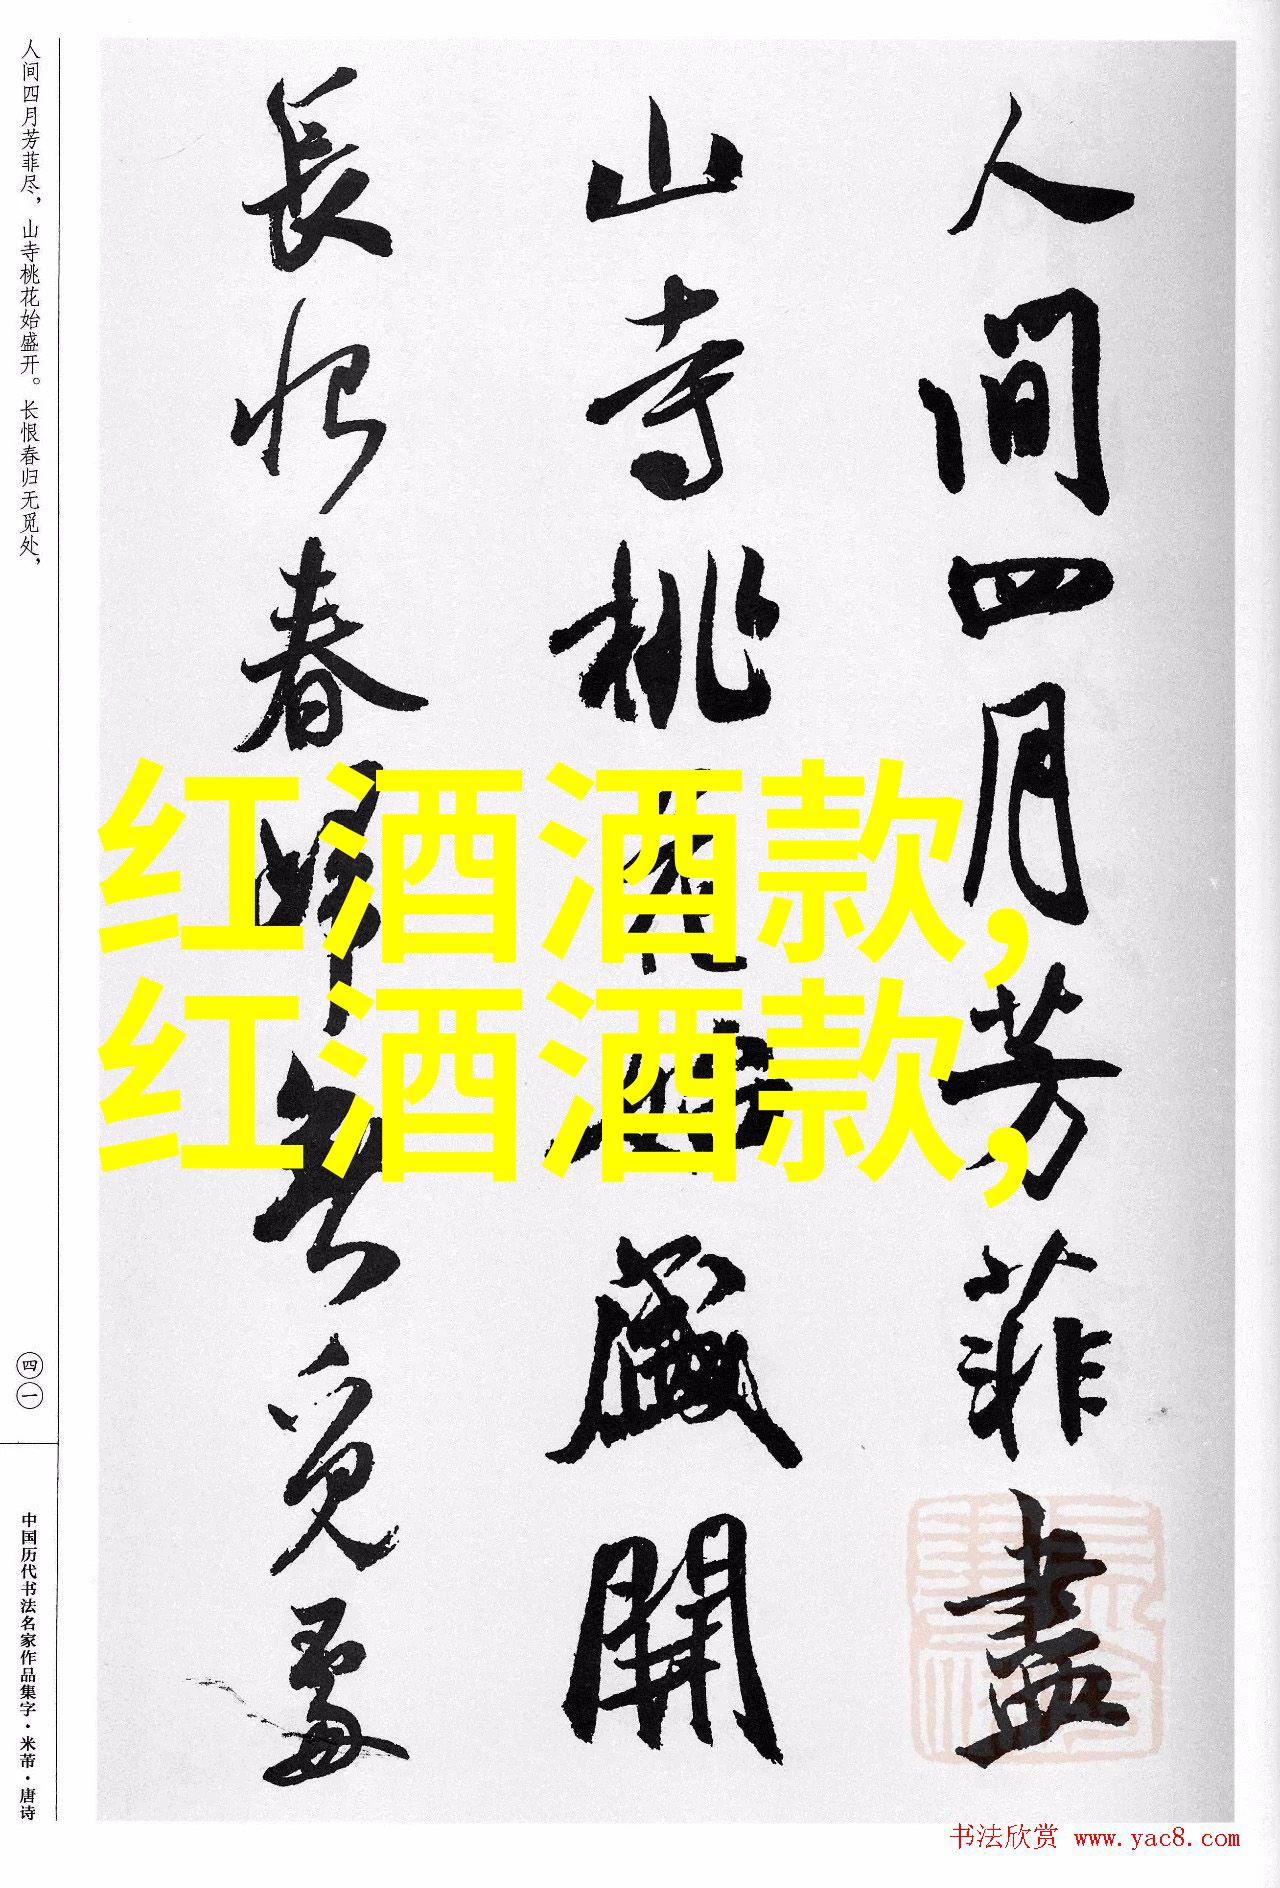 人間四月芳菲盡
山寺桃花始盛開
長恨春歸無覓處
红酒酒款,
红酒酒款,
人间四月芳菲尽，山寺桃花始盛开。长恨春归无觅处，
四一
中国历代书法名家作品集字·米芾·唐诗
书法欣赏 www.yac8.com